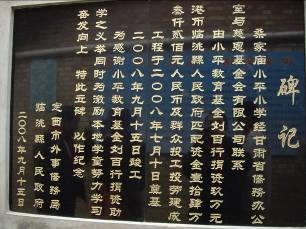 碑记
桑家庙小平小学经甘肃省侨务办公
室与慈恩基金会有限公司联系
由小平教育基金刘百行捐资玖万元
港币临洮县人民政府匹配资金壹拾肆万
叁仟贰佰元人民币及群众投工投劳建成
工程于二〇〇八年七月十日奠基
二〇〇八年九月十五日竣工
为感谢小平教育基金刘百行捐资助
学之义举同时为激励本地学童努力学习
奋发向上 特此立碑 以作纪念
定西市外事侨务局
临洮县人民政府
二〇〇八年九月十五日